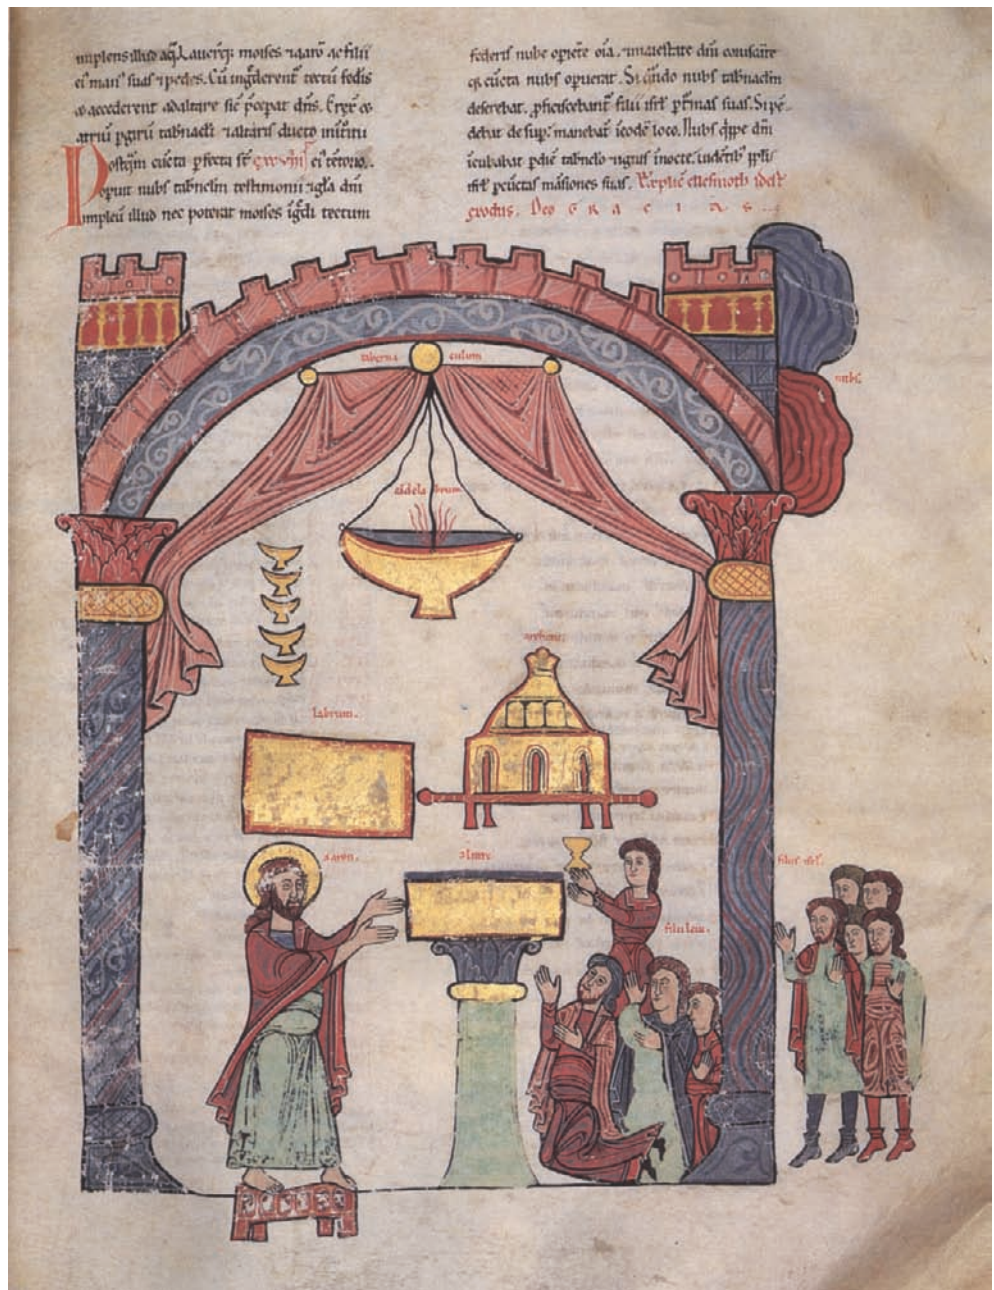 implens illud aq̃. Lauerq; moises ⁊ aarõ ac filii
ei' man' suas ⁊ pedes. Cũ
accederent ad altare sic p̃cepat dñs. Erex̃
atriũ p girũ tab'nacli ⁊ altaris ducto
Postq̃m cũcta pfecta st̃
operuit nubs tab'nclm testimonii ⁊ gl̃a dñi
impleu illud nec poterat moises ig̃di tectum
federis nube opiete oīa. ⁊ maiestate dñi coruscãte
q; cũcta nubs opuerat. Si q̃ndo nubs tab'naclm
deserebat. pficiscebant' filii isrl̃ p t'mas suas. Si pē
debat desup. manebat ī eodē loco. Nubs q̃ppe dñi
īcubabat p diē tab'nclo ⁊ ignis ī nocte. uidētib' ppli
isrl̃ p cũctas māsiones suas. Explic̃ ellesmoth idest
exodus. Deo GRACIAS
taberna culum
nubs.
cãdela brum
archam.
labrum.
aaron.
altare
filii leui.
filii isrl̃.